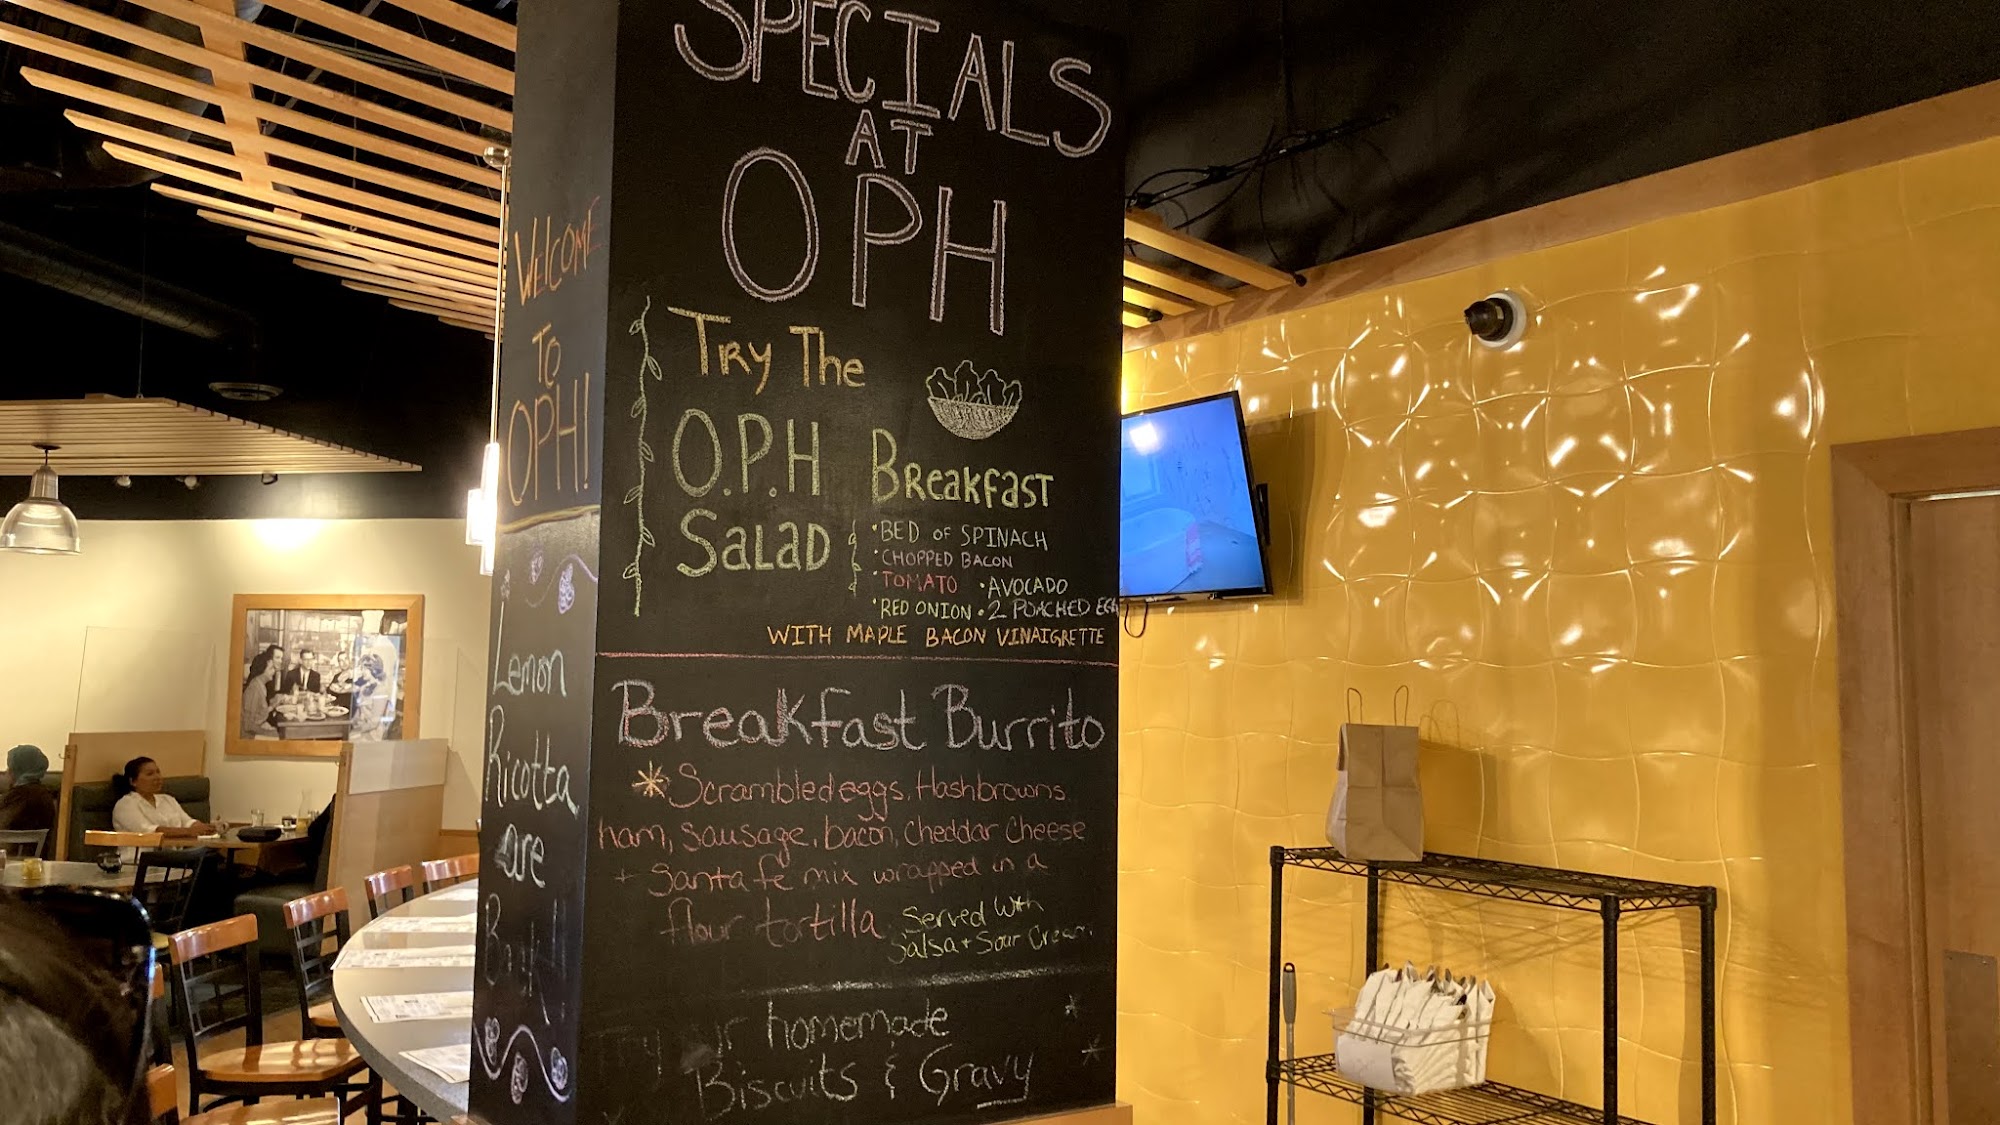 WELCOME
TO
OPH!
Lemon
Ricotta
are
Back!
SPECIALS
AT
OPH
TRY THE
O.P.H
SALAD
BREAKFAST
• BED OF SPINACH
• CHOPPED BACON
• TOMATO • AVOCADO
• RED ONION • 2 POACHED EGG
WITH MAPLE BACON VINAIGRETTE
Breakfast Burrito
Scrambled eggs, Hashbrowns
ham, sausage, bacon, cheddar cheese
+ Santa fe mix wrapped in a
flour tortilla
Served with
Salsa + Sour Cream
Try our homemade
Biscuits & Gravy